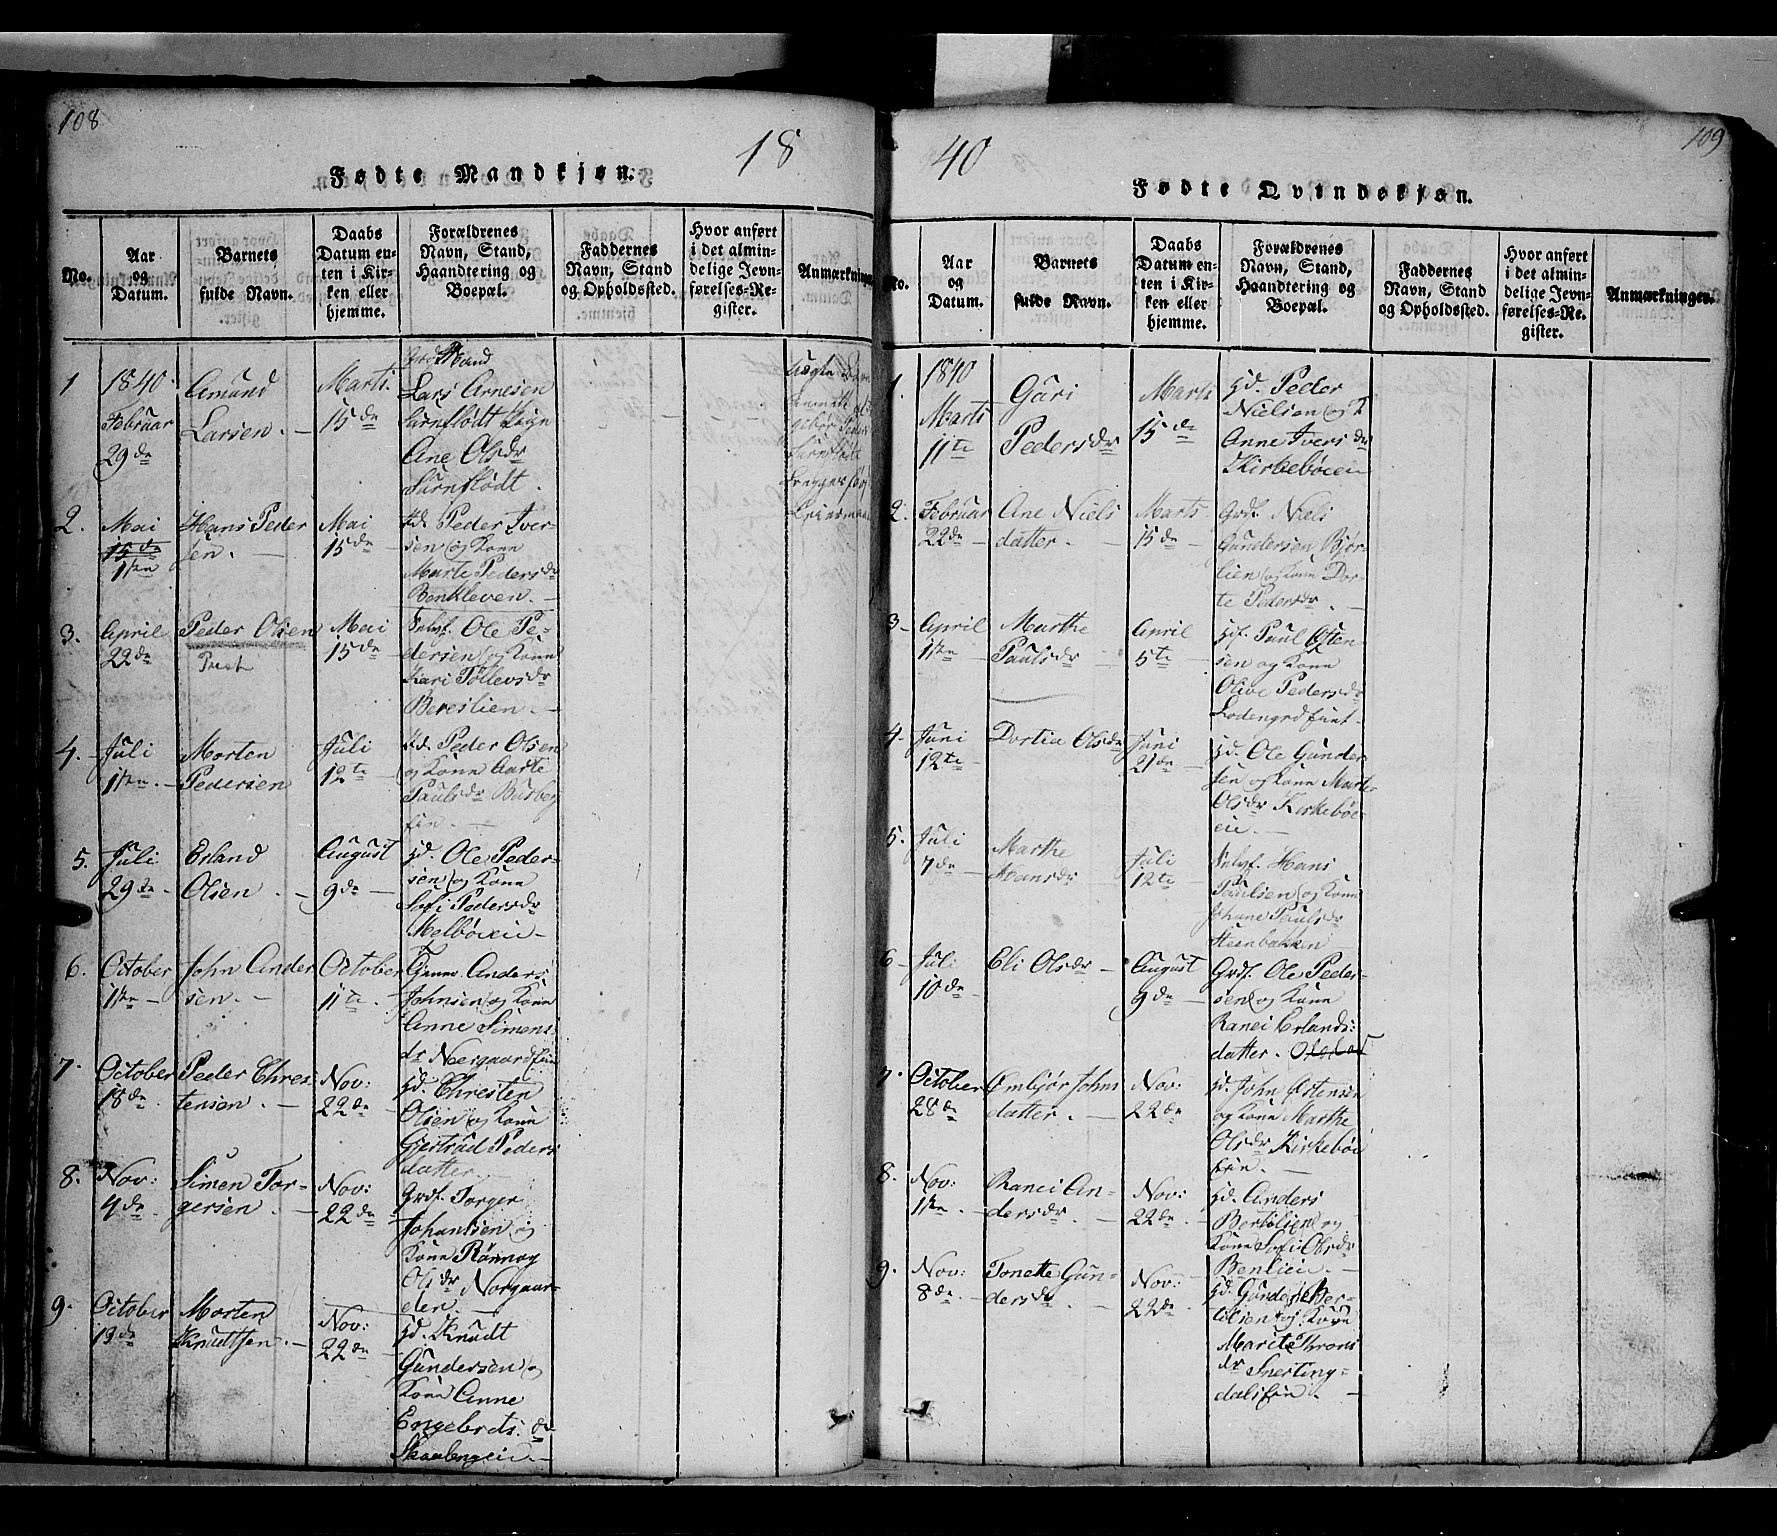 108
18
Fødte Mandkjøn.
No.
Aar
og
Datum.
Barnets
fulde Navn.
Daabs
Datum en-
ten i Kir-
ken eller
hjemme.
Forældrenes
Navn, Stand,
Haandtering og
Boepæl.
Faddernes
Navn, Stand
og Opholdssted.
Hvor anført
i det almin-
delige Jevn-
førelses-Re-
gister.
Anmærkninger
1
1840.
Februar
29de
Amund
Larsen. -
Marts
15de
Lars Arnesen
Ane Olsdr
2.
Mai
15de
1ste
Hans Peder
sen. -
Mai
15de
Peder Iver
sen og Kone
Marte Pedersdr
Benkleven. -
3.
April
22de
Peder Olsen
Mai
15de
Selvf. Ole Pe-
dersen og Kone
Kari Tollevsdr
Bereslien. -
4.
Juli
1ste
Morten
Pedersen
Juli
12te
Peder Olsen
og Kone Aarte
Paulsdr
5.
Juli
29de
Erland
Olsen. -
August
9de
Gd. Ole Peder-
sen og Kone
Sofi Pedersdr
Melbøeie -
6.
October
1ste -
John Ander
sen. -
October
11te.
Anders
Johnsen og Kone
Anne Simens
dr
7.
October
18de
Peder Chres-
tensen. -
Nov:
22de
Gd. Chresten
Olsen og Kone
Gjertrud Peders
datter
8.
Nov:
4de
Simen Tor-
gersen. -
Nov:
22de
Grdf. Torger
Johantsen og
Kone Rønnog
Olsdr Norgaar-
den. -
9.
October
19de
Morten
Knudtsen. -
Nov:
22de
Gd. Knudt
Gundersen og
Kone Anne
Engebrets. dr
109
40
Fødte Qvindekjøn.
No.
Aar
og
Datum.
Barnets
fulde Navn.
Daabs
Datum en-
ten i Kir-
ken eller
hjemme.
Forældrenes
Navn, Stand,
Haandtering og
Boepæl.
Faddernes
Navn, Stand
og Opholdssted.
Hvor anført
i det almin-
delige Jevn-
førelses-Re-
gister.
Anmærkninger.
1.
1840
Marts
11te
Guri
Pedersdr
Marts
15de
Gd. Peder
Nielsen og K
Anne Iversdr
Kirkebøeie
2.
Februar
22de
Ane Niels
datter. -
Marts
15de
Grdf. Niels
Gundersen Bjør-
lien og Kone Dor-
te Pedersdr. -
3-
April
1ste
Marthe
Paulsdr
April
5te
Gd. Paul Østen
sen og Kone
Olive Pedersdr
4-
Juni
12te
Dortia Olsdr
Juni
21de
Gd. Ole Gunder
sen og Kone Marte
Olsdr Kirkebøe-
eie. -
5.
Juli
7de
Marthe
Hansdr
Juli
12te
Selvf. Hans
Paulsen og Kone
Johane Paulsdr
Steenbakken
6-
Juli
10de
Eli Olsdr -
August
9de
Grdf. Ole Peder-
sen og Kone
Ranei Erlands:
datter.
7.
October
28de
Embjør Johns
datter. -
Nov:
22de
Gd. John Østensen
og Kone Marthe
Olsdr Kirkebøe
8.
Nov:
1ste
Ranei An-
dersdr. -
Nov:
22de
Gd. Anders
og
Kone Sofi Olsdr
Benlien. -
9.
Nov:
8de
Tonette Gun-
dersdr
Nov:
22de
og Kone
Marite Throns
dr Snerting-